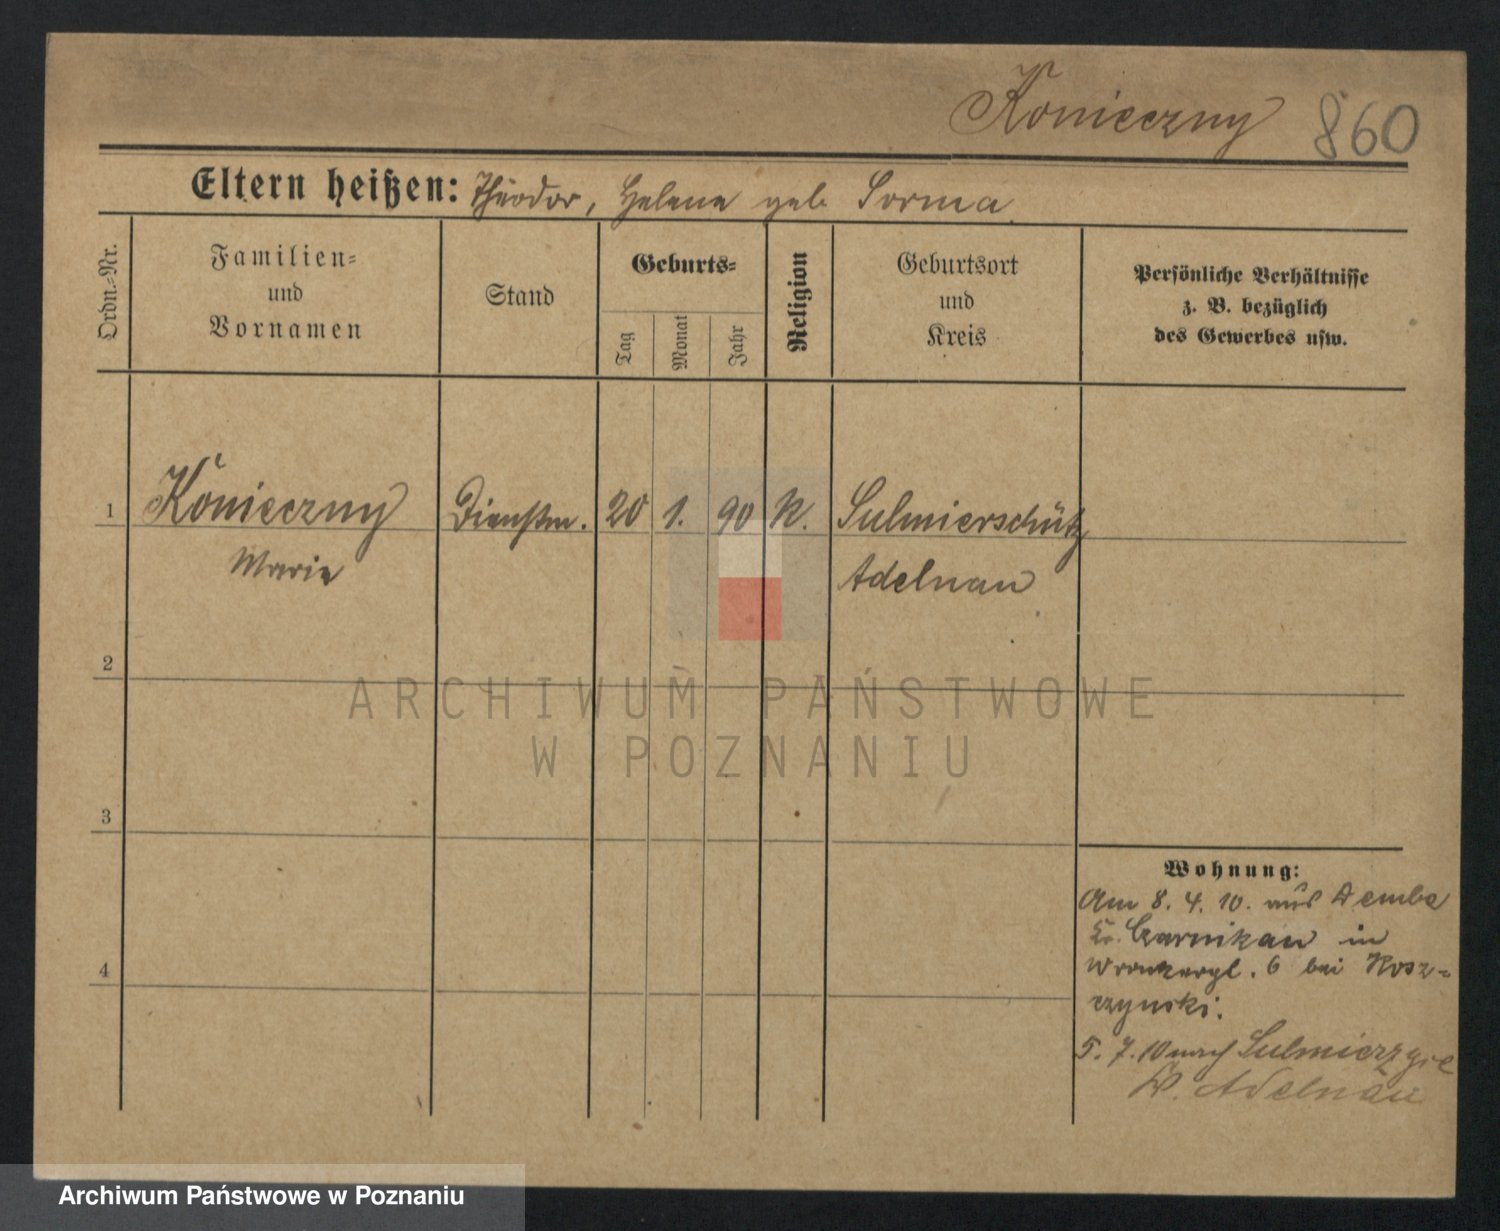 Konieczny 860
Eltern heißen: Theodor, Helene geb Sorma
Ordn.-Nr.
Familien=
und
Vornamen
Stand
Geburts=
Tag
Monat
Jahr
Religion
Geburtsort
und
Kreis
Persönliche Verhältnisse
z. B. bezüglich
des Gewerbes usw.
1 Konieczny Dienstm. 20 1. 90 K. Sulmierschütz
Marie Adelnau
2
3
4
Wohnung:
Am 8. 4. 10. aus Dembe
Kr. Czarnikau in
Wronkergl. 6 bei Kosz=
czynski.
5. 7. 10 nach Sulmierzyce
Kr. Adelnau
ARCHIWUM PAŃSTWOWE
W POZNANIU
Archiwum Państwowe w Poznaniu